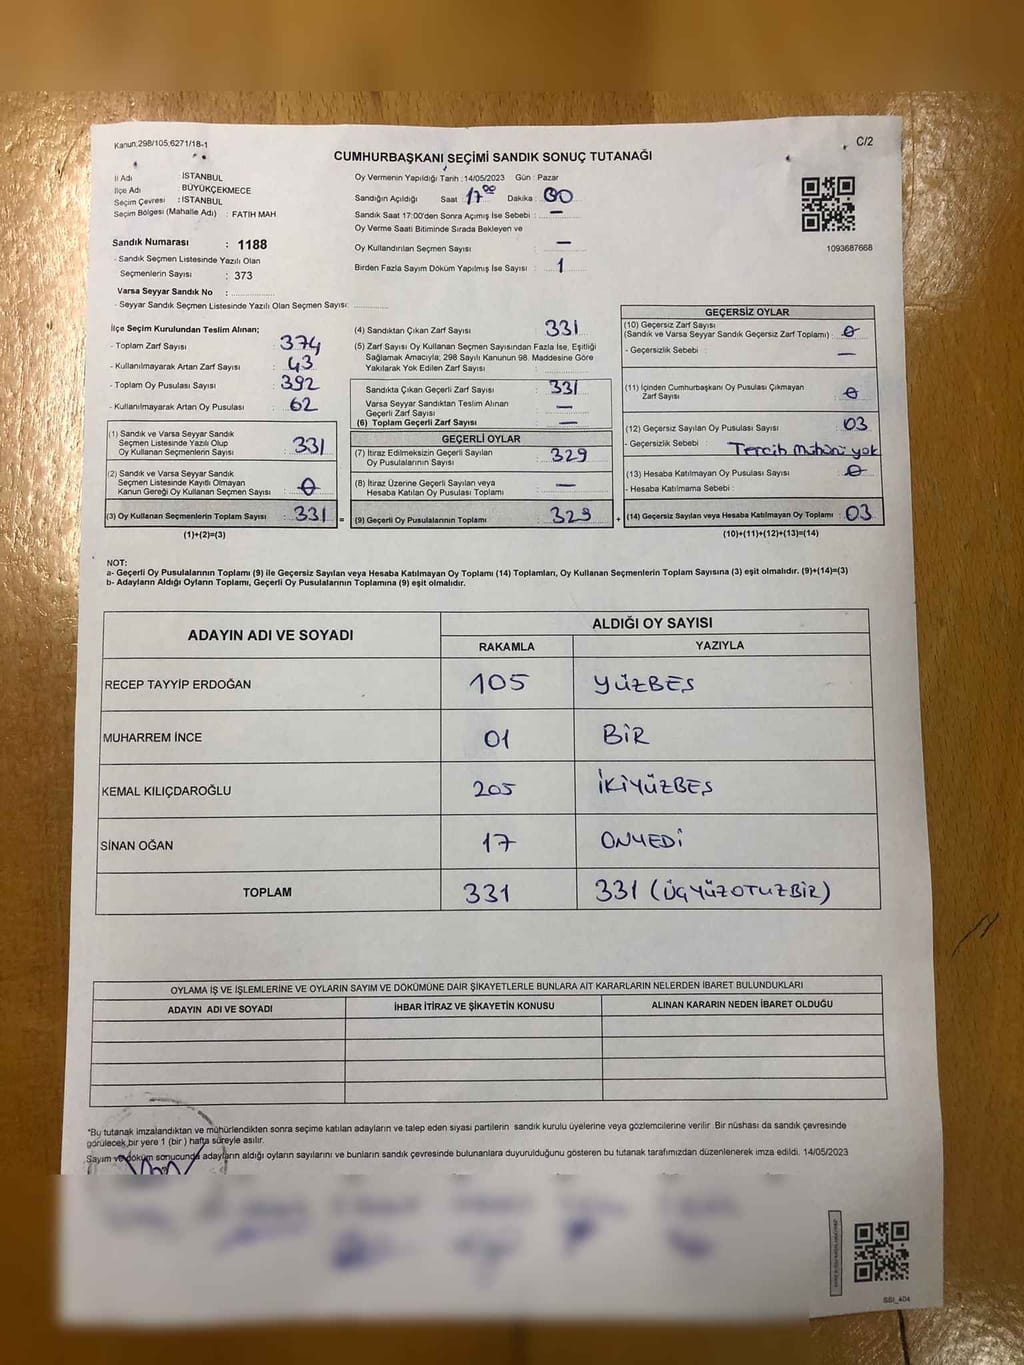 Kanun;298/105,6271/18-1
C/2
CUMHURBAŞKANI SEÇİMİ SANDIK SONUÇ TUTANAĞI
İl Adı : İSTANBUL
İlçe Adı : BÜYÜKÇEKMECE
Seçim Çevresi : İSTANBUL
Seçim Bölgesi (Mahalle Adı) : FATİH MAH
Sandık Numarası : 1188
- Sandık Seçmen Listesinde Yazılı Olan
Seçmenlerin Sayısı : 373
Varsa Seyyar Sandık No :
- Seyyar Sandık Seçmen Listesinde Yazılı Olan Seçmen Sayısı:
Oy Vermenin Yapıldığı Tarih :14/05/2023 Gün : Pazar
Sandığın Açıldığı Saat 17⁰⁰ Dakika 00
Sandık Saat 17:00'den Sonra Açımış İse Sebebi : —
Oy Verme Saati Bitiminde Sırada Bekleyen ve
Oy Kullandırılan Seçmen Sayısı : —
Birden Fazla Sayım Döküm Yapılmış İse Sayısı : 1
1093687668
İlçe Seçim Kurulundan Teslim Alınan;
- Toplam Zarf Sayısı : 374
- Kullanılmayarak Artan Zarf Sayısı : 43
- Toplam Oy Pusulası Sayısı : 392
- Kullanılmayarak Artan Oy Pusulası : 62
(1) Sandık ve Varsa Seyyar Sandık
Seçmen Listesinde Yazılı Olup
Oy Kullanan Seçmenlerin Sayısı : 331
(2) Sandık ve Varsa Seyyar Sandık
Seçmen Listesinde Kayıtlı Olmayan
Kanun Gereği Oy Kullanan Seçmen Sayısı : 0
(3) Oy Kullanan Seçmenlerin Toplam Sayısı : 331 =
(1)+(2)=(3)
(4) Sandıktan Çıkan Zarf Sayısı : 331
(5) Zarf Sayısı Oy Kullanan Seçmen Sayısından Fazla İse, Eşitliği
Sağlamak Amacıyla; 298 Sayılı Kanunun 98. Maddesine Göre
Yakılarak Yok Edilen Zarf Sayısı :
Sandıkta Çıkan Geçerli Zarf Sayısı : 331
Varsa Seyyar Sandıktan Teslim Alınan
Geçerli Zarf Sayısı : —
(6) Toplam Geçerli Zarf Sayısı : —
GEÇERLİ OYLAR
(7) İtiraz Edilmeksizin Geçerli Sayılan
Oy Pusulalarının Sayısı : 329
(8) İtiraz Üzerine Geçerli Sayılan veya
Hesaba Katılan Oy Pusulası Toplamı : —
(9) Geçerli Oy Pusulalarının Toplamı : 329 +
GEÇERSİZ OYLAR
(10) Geçersiz Zarf Sayısı
(Sandık ve Varsa Seyyar Sandık Geçersiz Zarf Toplamı) : 0
- Geçersizlik Sebebi : —
(11) İçinden Cumhurbaşkanı Oy Pusulası Çıkmayan
Zarf Sayısı : 0
(12) Geçersiz Sayılan Oy Pusulası Sayısı : 03
- Geçersizlik Sebebi : Tercih Mühürü yok
(13) Hesaba Katılmayan Oy Pusulası Sayısı : 0
- Hesaba Katılmama Sebebi :
(14) Geçersiz Sayılan veya Hesaba Katılmayan Oy Toplamı : 03
(10)+(11)+(12)+(13)=(14)
NOT:
a- Geçerli Oy Pusulalarının Toplamı (9) ile Geçersiz Sayılan veya Hesaba Katılmayan Oy Toplamı (14) Toplamları, Oy Kullanan Seçmenlerin Toplam Sayısına (3) eşit olmalıdır. (9)+(14)=(3)
b- Adayların Aldığı Oyların Toplamı, Geçerli Oy Pusulalarının Toplamına (9) eşit olmalıdır.
ADAYIN ADI VE SOYADI
ALDIĞI OY SAYISI
RAKAMLA YAZIYLA
RECEP TAYYİP ERDOĞAN 105 YÜZBEŞ
MUHARREM İNCE 01 BİR
KEMAL KILIÇDAROĞLU 205 İKİYÜZBEŞ
SİNAN OĞAN 17 ONYEDİ
TOPLAM 331 331 (ÜÇYÜZOTUZBİR)
OYLAMA İŞ VE İŞLEMLERİNE VE OYLARIN SAYIM VE DÖKÜMÜNE DAİR ŞİKAYETLERLE BUNLARA AİT KARARLARIN NELERDEN İBARET BULUNDUKLARI
ADAYIN ADI VE SOYADI İHBAR İTİRAZ VE ŞİKAYETİN KONUSU ALINAN KARARIN NEDEN İBARET OLDUĞU
*Bu tutanak imzalandıktan ve mühürlendikten sonra seçime katılan adayların ve talep eden siyasi partilerin sandık kurulu üyelerine veya gözlemcilerine verilir. Bir nüshası da sandık çevresinde
görülecek bir yere 1 (bir) hafta süreyle asılır.
Sayım ve döküm sonucunda adayların aldığı oyların sayılarını ve bunların sandık çevresinde bulunanlara duyurulduğunu gösteren bu tutanak tarafımızdan düzenlenerek imza edildi. 14/05/2023
SSI_404